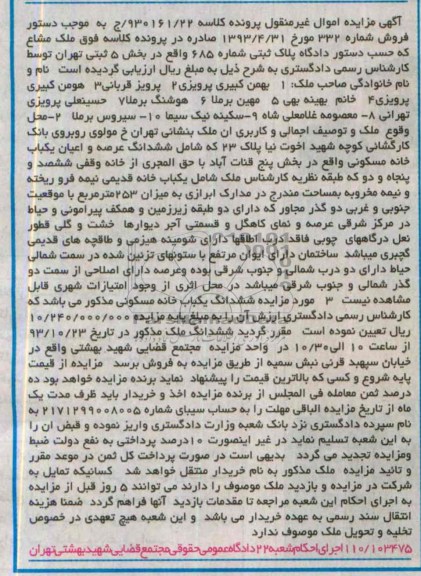 آگهی مزایده اموال غیرمنقول پرونده کلاسه ۹۳۰۱۶۱/۲۲/ج به موجب دستور
فروش شماره ۳۳۲ مورخ ۱۳۹۳/۴/۳۱ صادره در پرونده کلاسه فوق ملک مشاع
که حسب دستور دادگاه پلاک ثبتی شماره ۶۸۵ واقع در بخش ۵ ثبتی تهران توسط
کارشناس رسمی دادگستری به شرح ذیل به مبلغ ریال ارزیابی گردیده است نام و
نام خانوادگی صاحب ملک: ۱ بهمن کبیری پرویزی۲ پرویز قربانی۳ هومن کبیری
پرویزی۴ خانم بهینه بهی ۵ مهین برملا ۶ هوشنگ برملا۷ حسینعلی پرویزی
تهرانی ۸- معصومه غلامعلی شاه ۹-سکینه نیک سیما ۱۰- سیروس برملا ۲-محل
وقوع ملک و توصیف اجمالی و کاربری ان ملک بنشانی تهران خ مولوی روبروی بانک
کارگشائی کوچه شهید اخوت نیا پلاک ۲۳ که شامل ششدانگ عرصه و اعیان یکباب
خانه مسکونی واقع در بخش پنج قنات آباد با حق المجری از خانه وقفی ششصد و
پنجاه و دو که طبقه نظریه کارشناس ملک شامل یکباب خانه قدیمی نیمه فرو ریخته
و نیمه مخروبه بمساحت مندرج در مدارک ابرازی به میزان ۲۵۳مترمربع با موقعیت
جنوبی و غربی دو گذر مجاور که دارای دو طبقه زیرزمین و همکف پیرامونی و حیاط
در مرکز شرقی عرصه و نمای کاهگل و قسمتی آجر دیوارها خشت و گلی قطور
نعل درگاههای چوبی فاقد اطاقها دارای شومینه هیزمی و طاقچه های قدیمی
گچبری میباشد ساختمان دارای ایوان مرتفع با ستونهای تزئین شده در سمت شمالی
حیاط دارای دو درب شمالی و جنوب شرقی بوده وعرصه دارای اصلاحی از سمت دو
گذر شمالی و جنوب شرقی میباشد در محل اثری از وجود امتیازات شهری قابل
مشاهده نیست ۳ مورد مزایده ششدانگ یکباب خانه مسکونی مذکور می باشد که
کارشناس رسمی دادگستری ارزش آن را به مبلغ پایه مزایده ۱۰/۲۴۰/۰۰۰/۰۰۰
ریال تعیین نموده است مقرر گردید ششدانگ ملک مذکور در تاریخ ۹۳/۱۰/۲۳
از ساعت ۱۰ الی۱۰/۳۰ در واحد مزایده مجتمع قضایی شهید بهشتی واقع در
خیابان سپهبد قرنی نبش سمیه از طریق مزایده به فروش برسد مزایده از قیمت
پایه شروع و کسی که بالاترین قیمت را پیشنهاد نماید برنده مزایده خواهد بود ده
درصد ثمن معامله فی المجلس از برنده مزایده اخذ و خریدار باید ظرف مدت یک
ماه از تاریخ مزایده الباقی مهلت را به حساب سیبای شماره ۲۱۷۱۲۹۹۰۰۸۰۰۵ به
نام سپرده دادگستری نزد بانک شعبه وزارت دادگستری واریز نموده و قبض ان را
به این شعبه تسلیم نماید در غیر اینصورت ۱۰درصد پرداختی به نفع دولت ضبط
ومزایده تجدید می گردد بدیهی است در صورت پرداخت کل ثمن در موعد مقرر
و تائید مزایده ملک مذکور به نام خریدار منتقل خواهد شد کسانیکه تمایل به
شرکت در مزایده و بازدید ملک موصوف را دارند می توانند ۵ روز قبل از مزایده
به اجرای احکام این شعبه مراجعه تا مقدمات بازدید آنها فراهم گردد ضمنا هزینه
انتقال سند رسمی به عهده خریدار می باشد و این شعبه هیچ تعهدی در خصوص
تخلیه و تحویل ملک موصوف ندارد
۱۱۰/۱۰۳۴۷۵ اجرای احکام شعبه ۲۲ دادگاه عمومی حقوقی مجتمع قضایی شهید بهشتی تهران